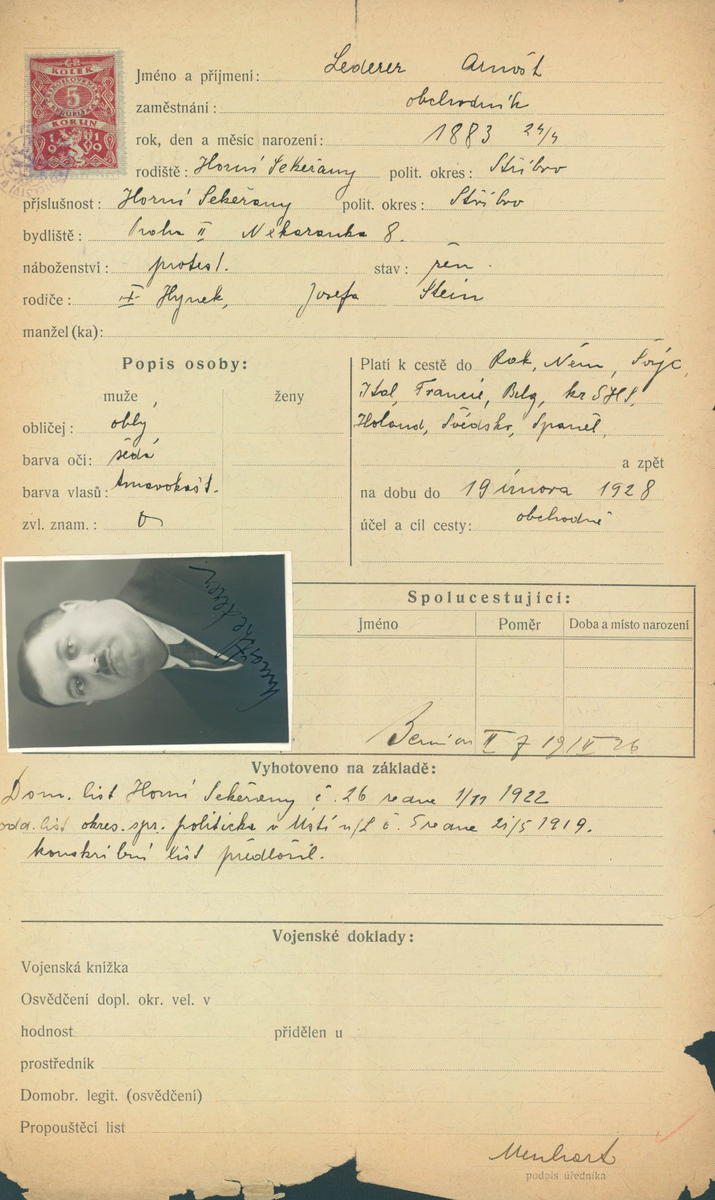 Č.R.
KOLEK
5
KORUN
1919
Jméno a příjmení: Lederer Arnošt
zaměstnání: obchodník
rok, den a měsíc narození: 1883 24/4
rodiště: Horní Sekeřany polit. okres: Stříbro
příslušnost: Horní Sekeřany polit. okres: Stříbro
bydliště: Praha II Nekazanka 8.
náboženství: protest. stav: žen.
rodiče: Hynek, Josefa Stein
manžel(ka):
Popis osoby:
muže ženy
obličej: oblý
barva očí: šedá
barva vlasů: tmavokašt.
zvl. znam.: 0
Platí k cestě do Rak, Něm, Švýc,
Ital, Francie, Belg, kr SHS,
Holand, Švédsko, Španěl,
a zpět
na dobu do 19 února 1928
účel a cíl cesty: obchodně
Spolucestující:
Jméno Poměr Doba a místo narození
II 19/II 26
Vyhotoveno na základě:
Dom. list Horní Sekeřany č. 26 ze dne 1/11 1922
odd. list okres. spr. politická v Ústí n/L č. 5 ze dne 21/5 1919.
konskribční list předložil.
Vojenské doklady:
Vojenská knížka
Osvědčení dopl. okr. vel. v
hodnost přidělen u
prostředník
Domobr. legit. (osvědčení)
Propouštěcí list
Menhart
podpis úředníka